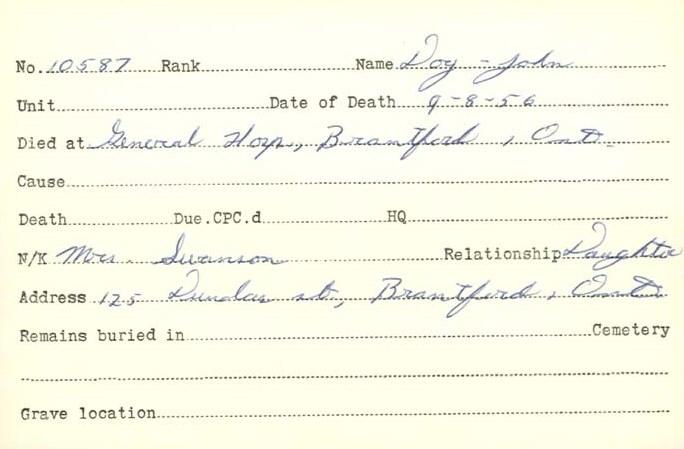 No. 10587 Rank Name Doy - John
Unit Date of Death 9-8-56
Died at General Hosp, Brantford, Ont.
Cause
Death Due.CPC.d HQ
N/K Mrs. Swanson Relationship Daughter
Address 125 Dundas st, Brantford, Ont.
Remains buried in Cemetery
Grave location